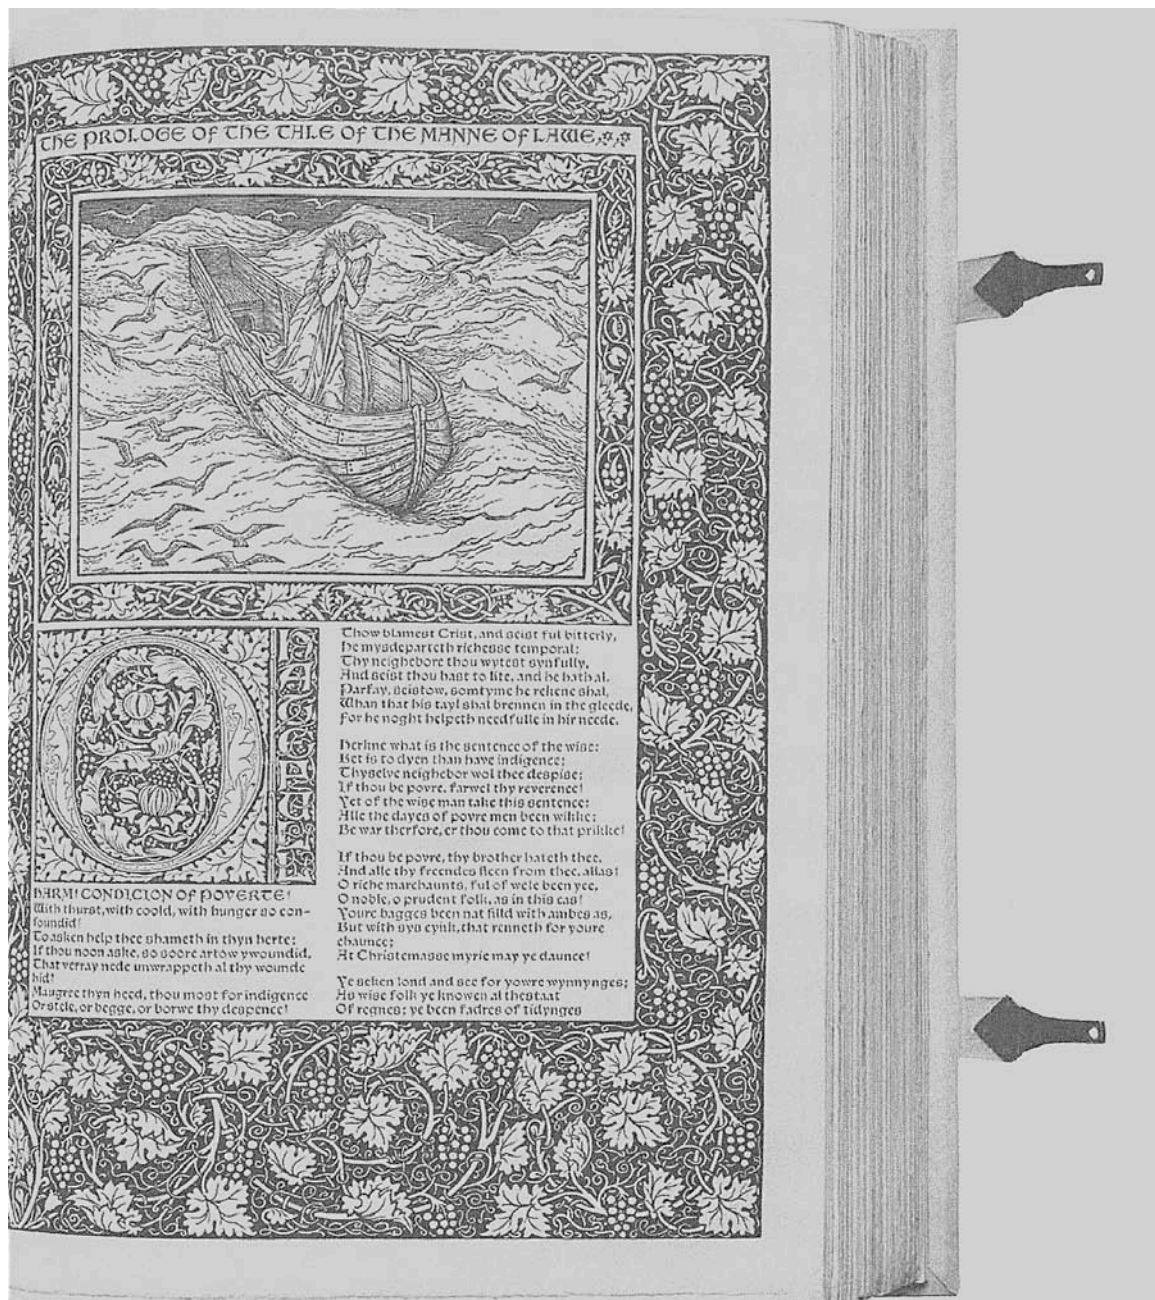 THE PROLOGE OF THE TALE OF THE MANNE OF LAWE
O HATEFUL
HARM! CONDICION OF POVERTE!
With thurst, with coold, with hunger so con-
foundid!
To asken help thee shameth in thyn herte;
If thou noon aske, so soore artow ywoundid,
That verray nede unwrappeth al thy wounde
hid!
Maugree thyn heed, thou most for indigence
Or stele, or begge, or borwe thy despence!
Thow blamest Crist, and seist ful bitterly,
He mysdeparteth richesse temporal;
Thy neighebore thou wytest synfully,
And seist thou hast to lite, and he hath al.
Parfay, seistow, somtyme he rekene shal,
Whan that his tayl shal brennen in the gleede,
For he noght helpeth needfulle in hir neede.
Herkne what is the sentence of the wise:
Bet is to dyen than have indigence;
Thyselve neighebor wol thee despise;
If thou be povre, farwel thy reverence!
Yet of the wise man take this sentence:
Alle the dayes of povre men been wikke;
Be war therfore, er thou come to that prikke!
If thou be povre, thy brother hateth thee,
And alle thy freendes fleen from thee, allas!
O riche marchaunts, ful of wele been yee,
O noble, o prudent folk, as in this cas!
Youre bagges been nat filld with ambes as,
But with sys cynk, that renneth for youre
chaunce;
At Christemasse myrie may ye daunce!
Ye seken lond and see for yowre wynnynges;
As wise folk ye knowen al thestaat
Of regnes; ye been fadres of tidynges